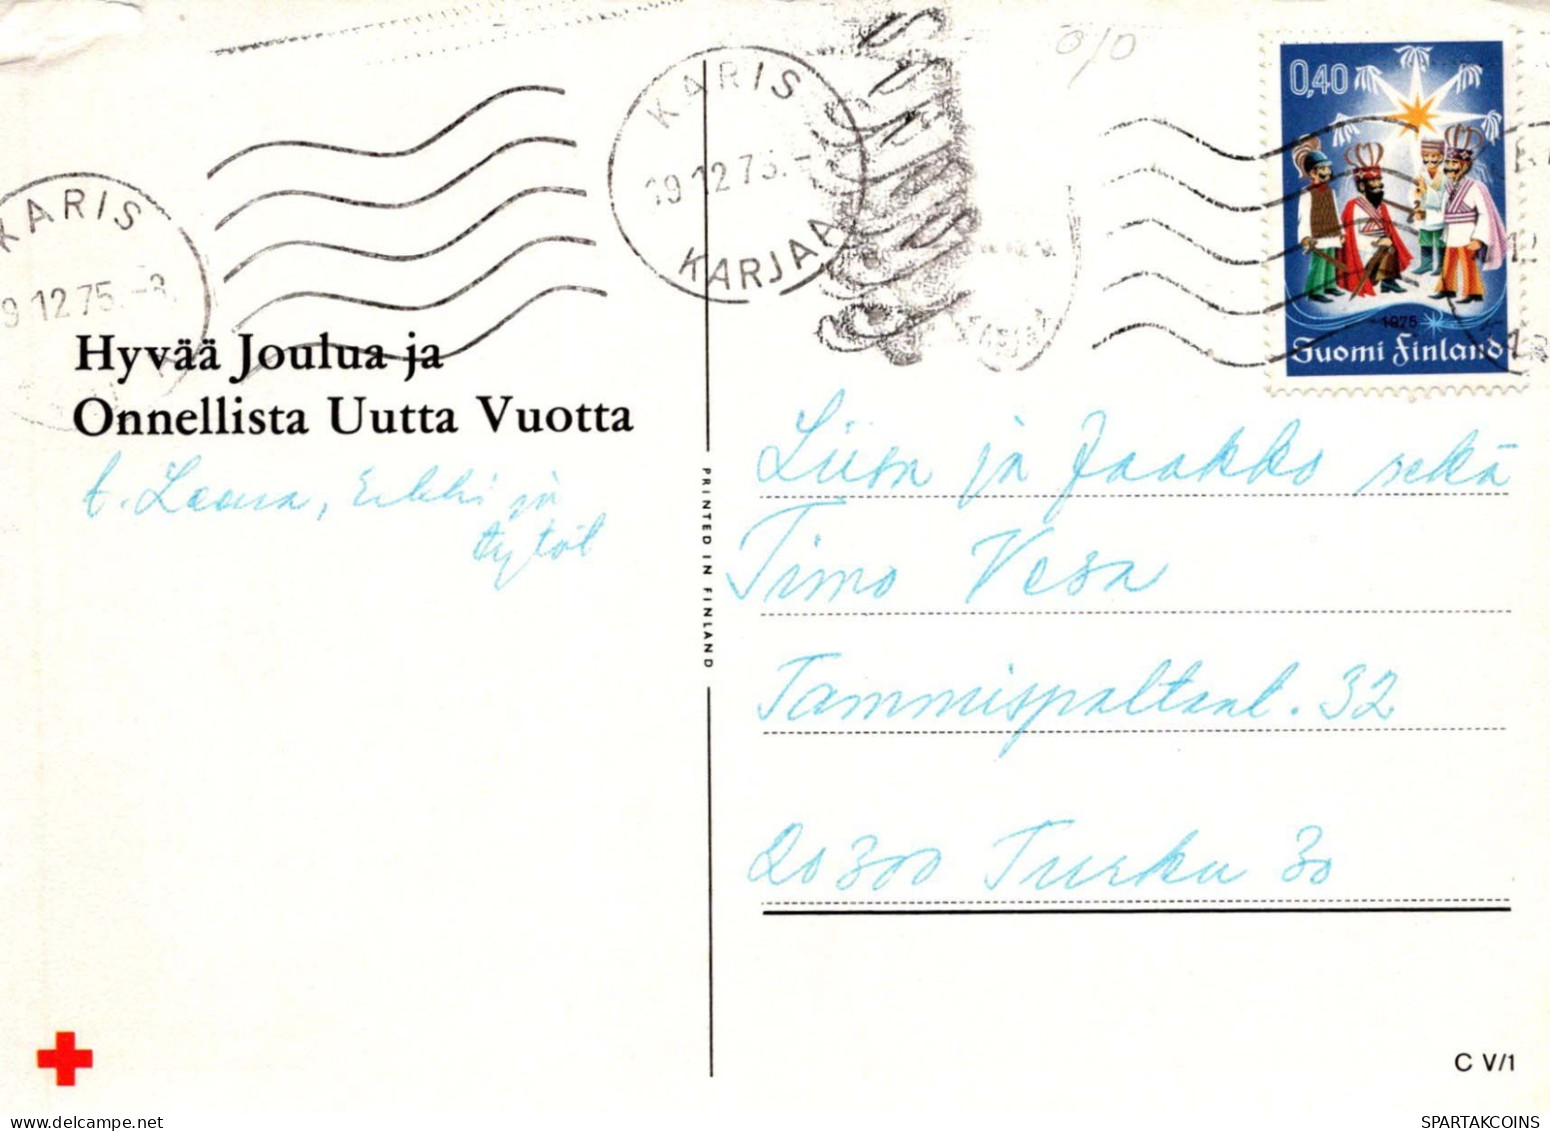 KARIS
19.12.75.-
KARJAA
KARIS
9.12.75.-8.
0/0
0,40
1975
Suomi Finland
Hyvää Joulua ja
Onnellista Uutta Vuotta
t. Leena, Erkki ja
tytöt
PRINTED IN FINLAND
Liisa ja Jaakko sekä
Timo Vesa
Tammispaltant. 32
20300 Turku 30
C V/1
SPARTAKCOINS